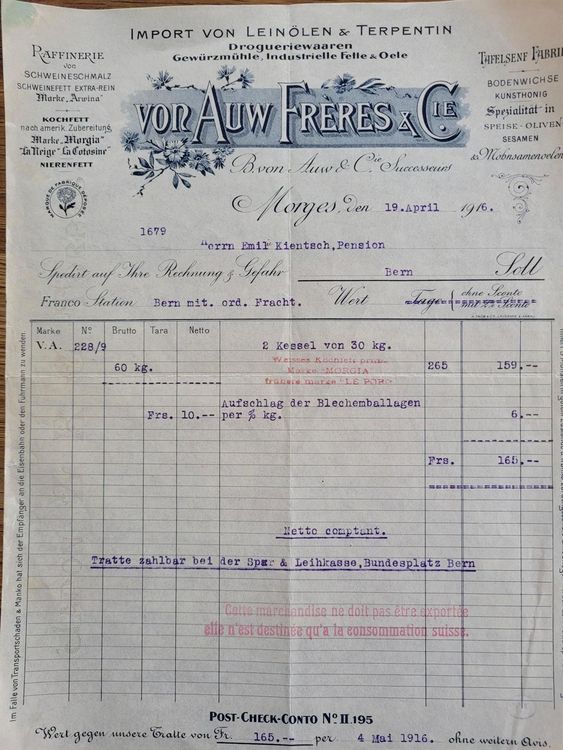 IMPORT VON LEINÖLEN & TERPENTIN
Drogueriewaaren
Gewürzmühle, Industrielle Felle & Oele
RAFFINERIE
von
SCHWEINESCHMALZ
SCHWEINEFETT EXTRA-REIN
Marke „Arwina"
KOCHFETT
nach amerik. Zubereitung
Marke „Morgia"
"La Neige" "La Cotosine"
NIERENFETT
MARQUE DE FABRIQUE DÉPOSÉE
TAFELSENF FABRIK
BODENWICHSE
KUNSTHONIG
Spezialität in
SPEISE-OLIVEN
SESAMEN
& Mohnsamenoelen
VON AUW FRÈRES & CIE
B. von Auw & Cie Successeurs
Morges, den 19.April 1916.
1679
Herrn Emil Kientsch, Pension
Spedirt auf Ihre Rechnung & Gefahr Bern Soll
Franco Station Bern mit. ord. Fracht. Wert Tage ohne Sconto
mit 2% Sconto
Marke No Brutto Tara Netto
V.A. 228/9 2 Kessel von 30 kg.
Weisses Kochfett prima
60 kg. Marke "MORGIA" 265 159.--
frühere marke "LE PORC"
Aufschlag der Blechemballagen
Frs. 10.-- per % kg. 6.--
Frs. 165.--
Netto comptant.
Tratte zahlbar bei der Spar & Leihkasse, Bundesplatz Bern
Cette marchandise ne doit pas être exportée
elle n'est destinée qu'a la consommation suisse.
Im Falle von Transportschäden & Manko hat sich der Empfänger an die Eisenbahn oder den Fuhrmann zu wenden
POST-CHECK-CONTO No II.195
Wert gegen unsere Tratte von Fr. 165.-- per 4 Mai 1916. ohne weitern Avis.